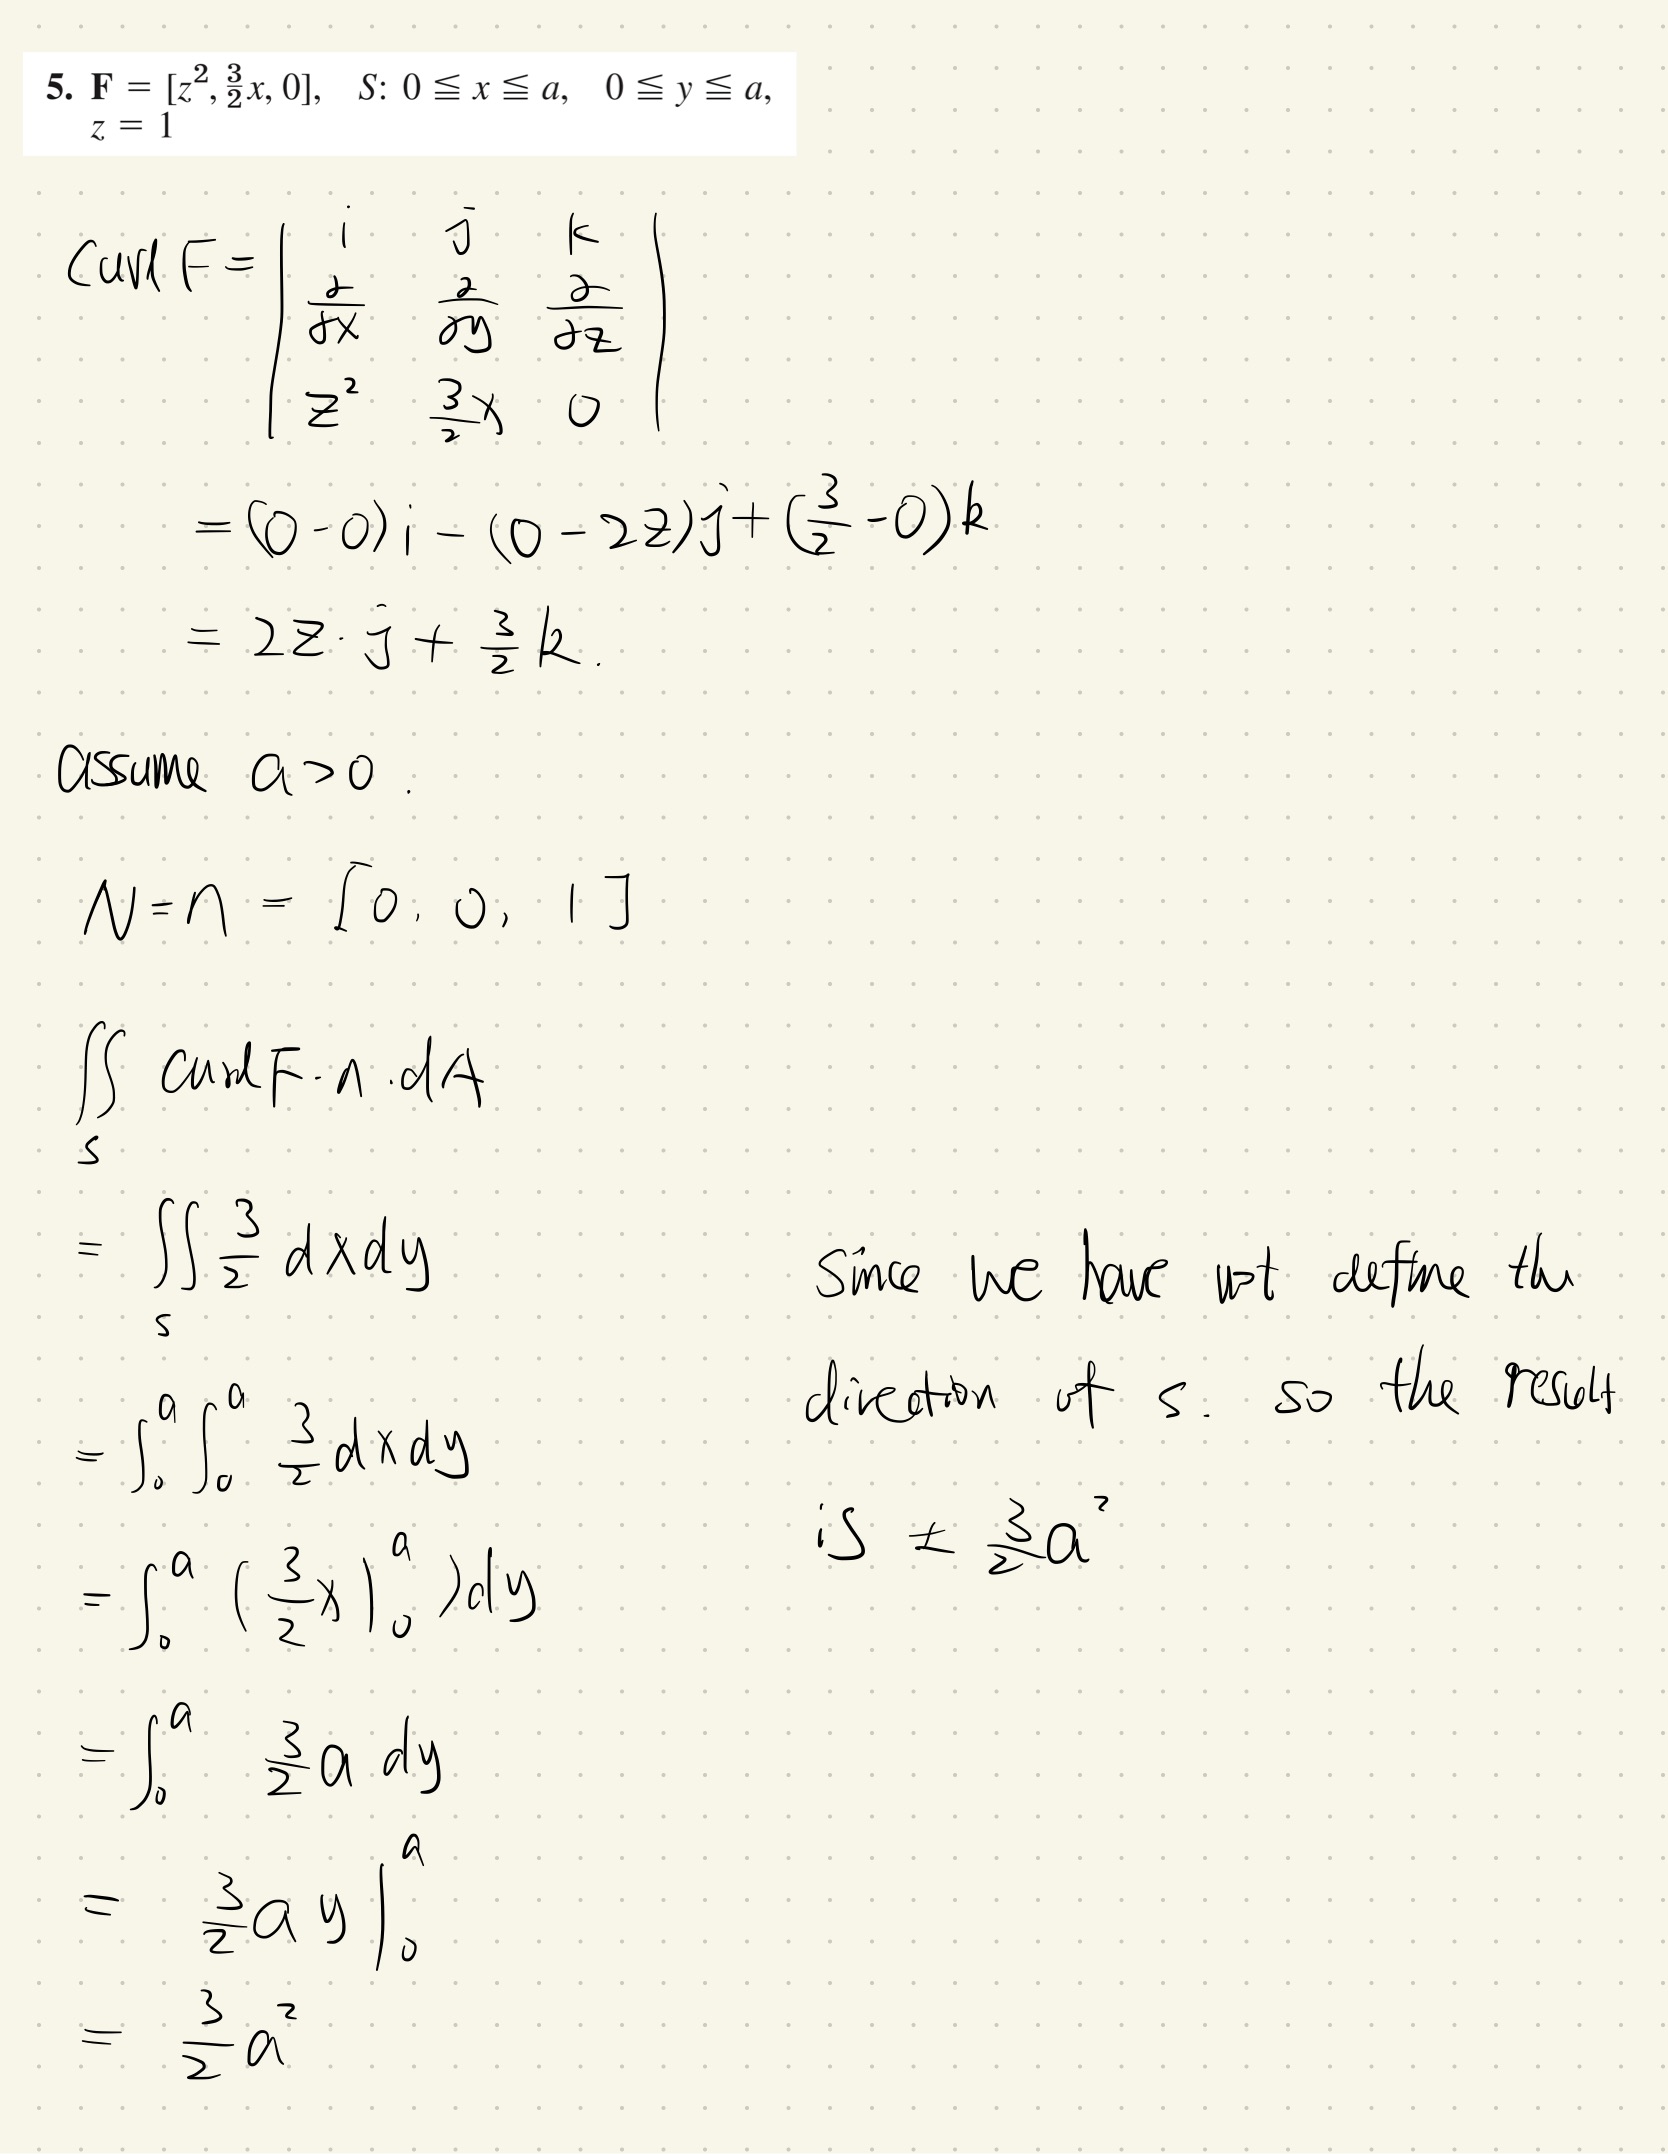 5. F = [z², 3/2 x, 0], S: 0 ≦ x ≦ a, 0 ≦ y ≦ a,
z = 1
Curl F = | i j k |
| ∂/∂x ∂/∂y ∂/∂z |
| z² 3/2 x 0 |
= (0-0)i - (0-2z)j + (3/2 - 0)k
= 2z·j + 3/2 k.
assume a>0.
N=n = [0, 0, 1]
∬_S Curl F·n·dA
= ∬_S 3/2 dxdy
= ∫₀ᵃ ∫₀ᵃ 3/2 dxdy
= ∫₀ᵃ (3/2 x |₀ᵃ )dy
= ∫₀ᵃ 3/2 a dy
= 3/2 a y |₀ᵃ
= 3/2 a²
Since we have not define the
direction of s. so the result
is ± 3/2 a²